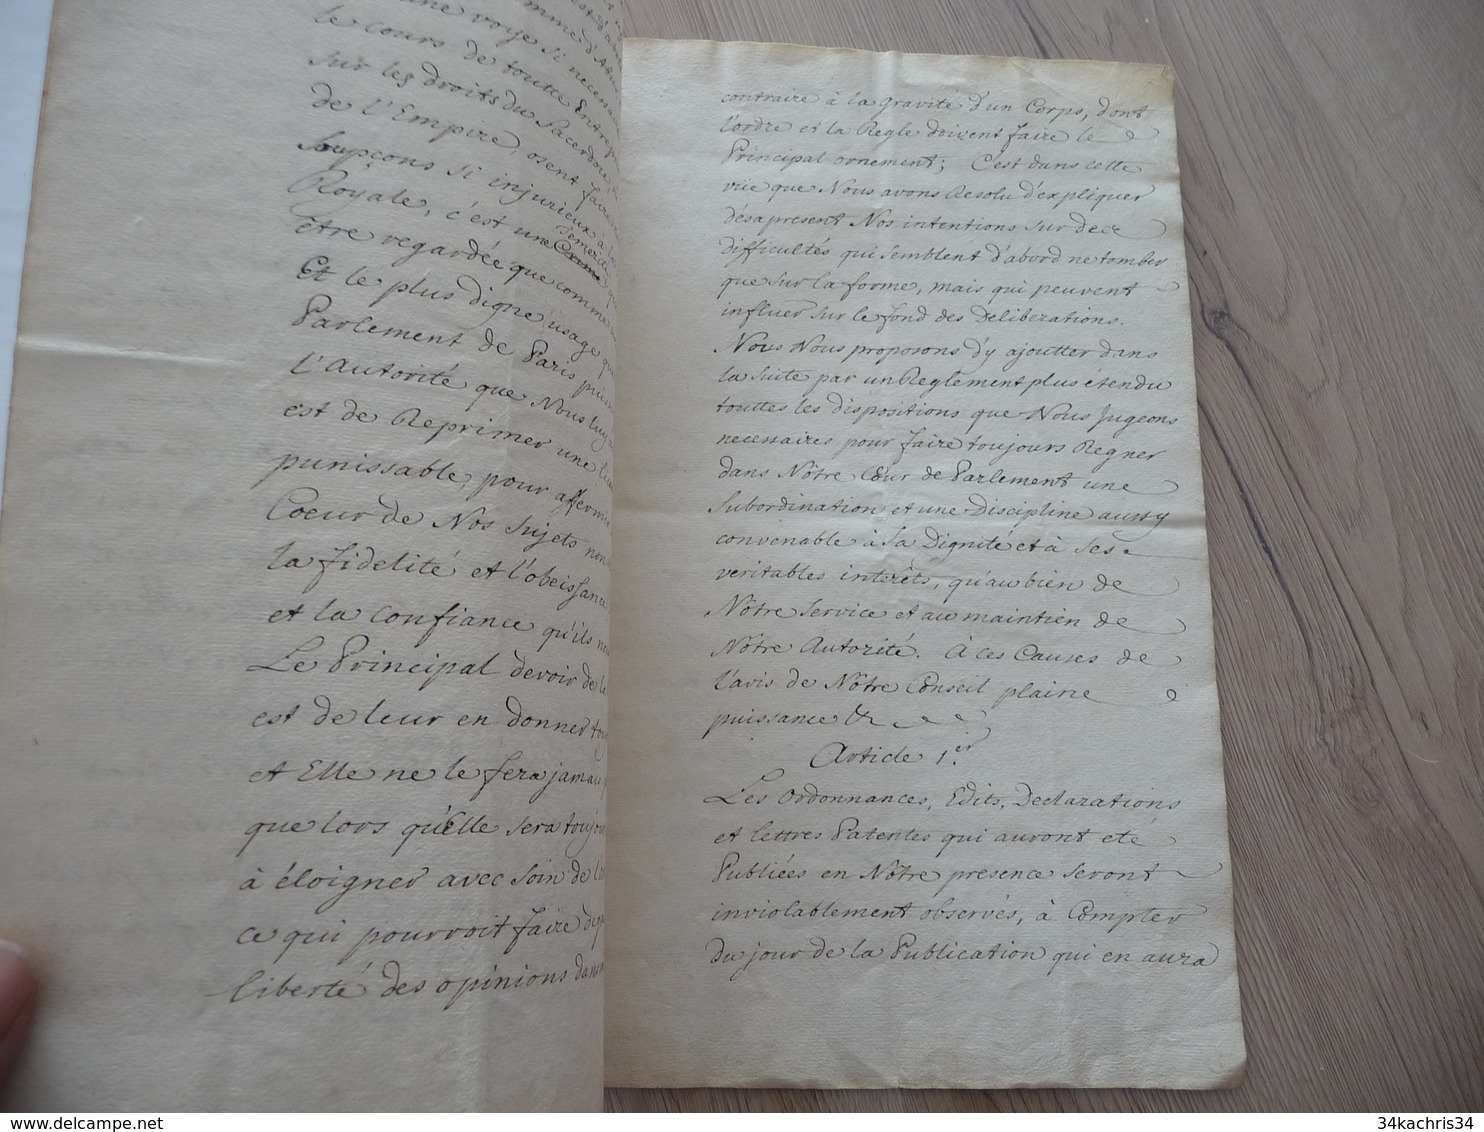 une voye si necessa
le cours de toutte Entrep
sur les droits du Sacerdoce,
de l'Empire, osent faire
soupçons si injurieux à la
Royale, c'est une temerité
être regardée que comme
Et le plus digne usage que
Parlement de Paris puis
l'autorité que Nous luy
est de Reprimer une li
punissable, pour affermir
Coeur de Nos sujets non
la fidelité et l'obeissance
et la confiance qu'ils no
Le Principal devoir de
est de leur en donner
et Elle ne le fera jama
que lors qu'Elle sera toujou
à éloigner avec soin de
ce qui pourroit faire deg
liberté des opinions dan
contraire à la gravité d'un Corps, dont
l'ordre et la Regle doivent faire le
Principal ornement; C'est dans cette
vüe que Nous avons Resolu d'expliquer
désapresent Nos intentions sur de ce
difficultés qui semblent d'abord ne tomber
que sur la forme, mais qui peuvent
influer sur le fond des Deliberations.
Nous Nous proposons d'y ajoutter dans
la suite par un Reglement plus étendu
touttes les dispositions que Nous Jugeons
necessaires pour faire toujours Regner
dans Nôtre Cour de Parlement une
subordination et une Discipline aussy
convenable à sa Dignité et à ses
veritables interêts, qu'au bien de
Nôtre service et au maintien de
Nôtre Autorité. A ces Causes de
l'avis de Nôtre Conseil plaine
puissance &c
Article 1.er
Les Ordonnances, Edits, Declarations
et lettres Patentes qui auront eté
Publiées en Nôtre presence seront
inviolablement observés, à Compter
Du jour de la Publication qui en aura
34kachris34
34kachris34